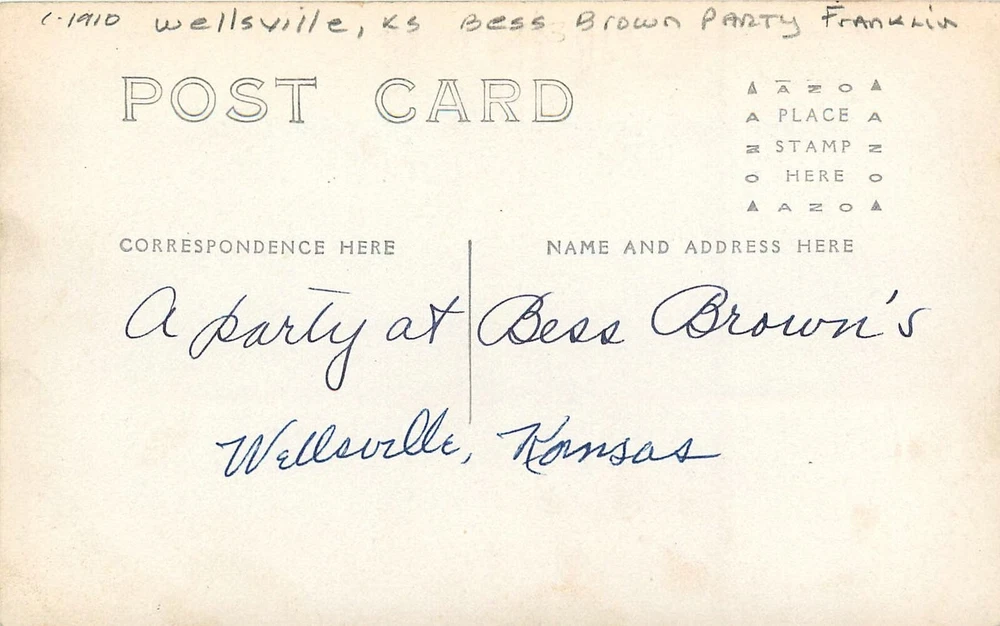 c-1910 Wellsville, KS Bess Brown PARTY Franklin
POST CARD
AZO
PLACE
STAMP
HERE
AZO
AZO
AZO
CORRESPONDENCE HERE
NAME AND ADDRESS HERE
A party at Bess Brown's
Wellsville, Kansas